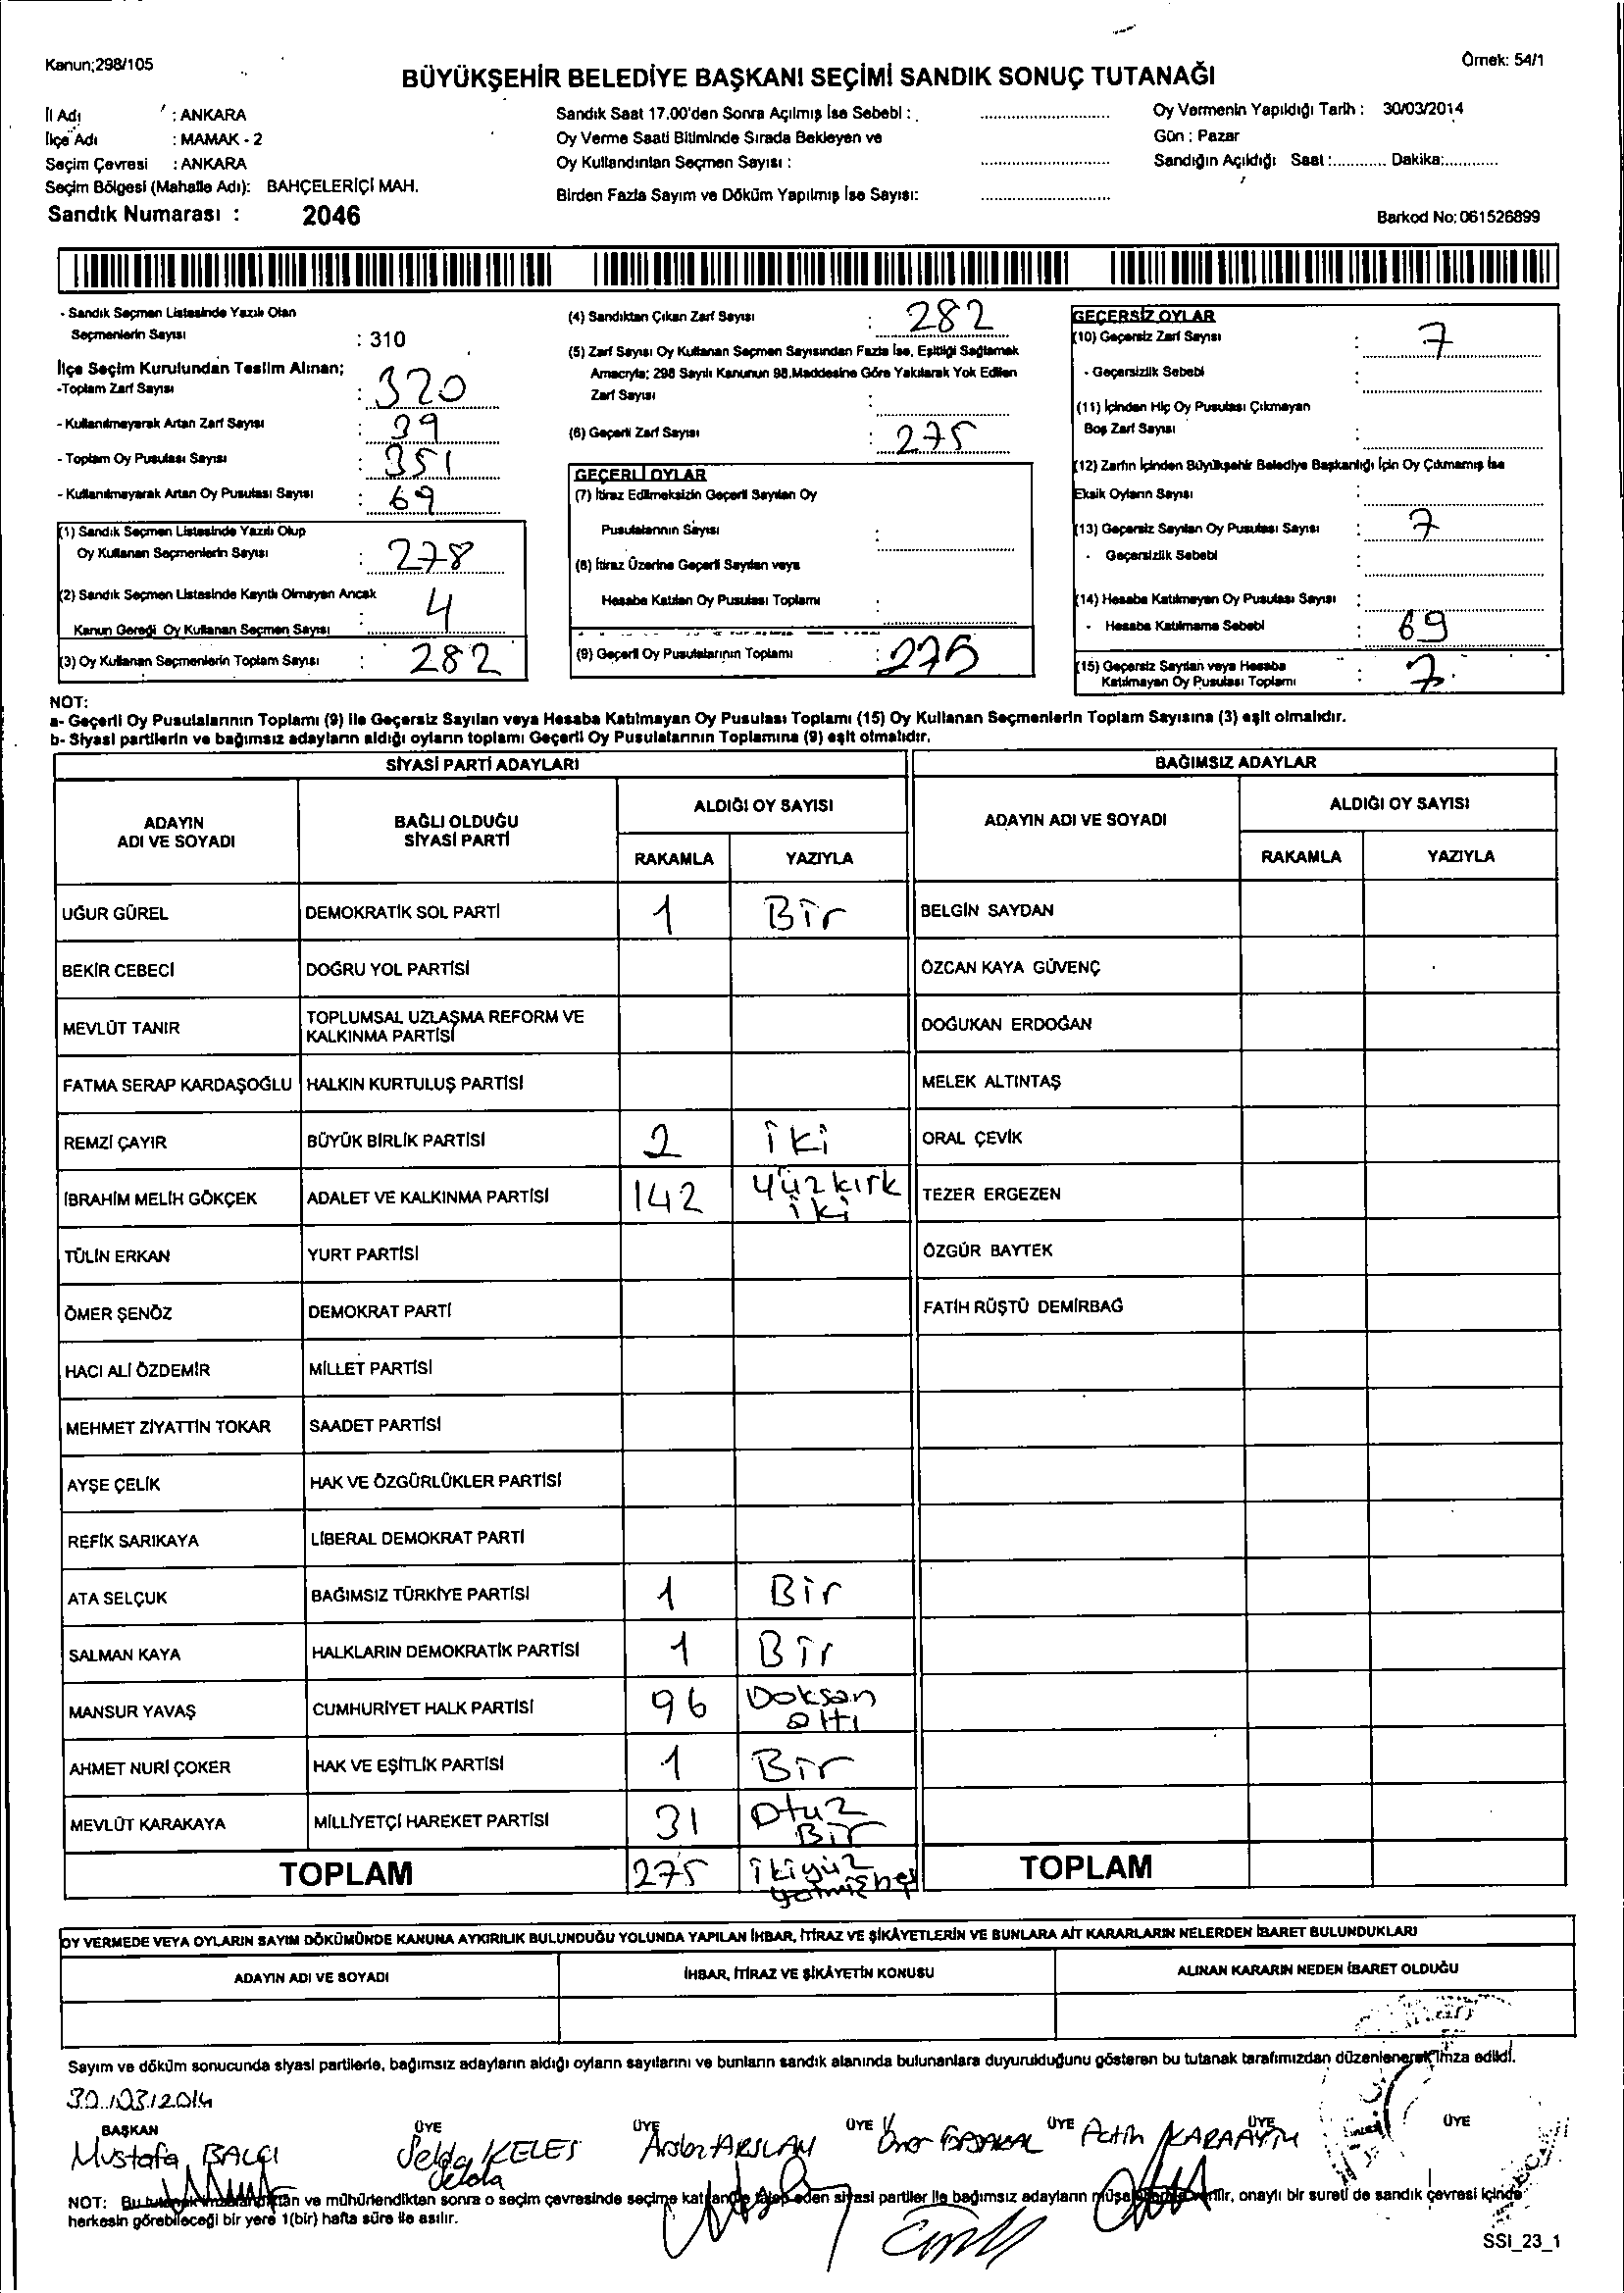 Kanun;298/105
Örnek: 54/1
BÜYÜKŞEHİR BELEDİYE BAŞKANI SEÇİMİ SANDIK SONUÇ TUTANAĞI
İl Adı : ANKARA
İlçe Adı : MAMAK - 2
Seçim Çevresi : ANKARA
Seçim Bölgesi (Mahalle Adı): BAHÇELERİÇİ MAH.
Sandık Numarası : 2046
Sandık Saat 17.00'den Sonra Açılmış İse Sebebi :
Oy Verme Saati Bitiminde Sırada Bekleyen ve
Oy Kullandırılan Seçmen Sayısı :
Birden Fazla Sayım ve Döküm Yapılmış İse Sayısı:
Oy Vermenin Yapıldığı Tarih : 30/03/2014
Gün : Pazar
Sandığın Açıldığı Saat :............ Dakika:............
Barkod No: 061526899
- Sandık Seçmen Listesinde Yazılı Olan
Seçmenlerin Sayısı : 310
İlçe Seçim Kurulundan Teslim Alınan;
-Toplam Zarf Sayısı : 320
- Kullanılmayarak Artan Zarf Sayısı : 39
- Toplam Oy Pusulası Sayısı : 351
- Kullanılmayarak Artan Oy Pusulası Sayısı : 69
(1) Sandık Seçmen Listesinde Yazılı Olup
Oy Kullanan Seçmenlerin Sayısı : 278
(2) Sandık Seçmen Listesinde Kayıtlı Olmayan Ancak
Kanun Gereği Oy Kullanan Seçmen Sayısı : 4
(3) Oy Kullanan Seçmenlerin Toplam Sayısı : 282
(4) Sandıktan Çıkan Zarf Sayısı : 282
(5) Zarf Sayısı Oy Kullanan Seçmen Sayısından Fazla İse, Eşitliği Sağlamak
Amacıyla; 298 Sayılı Kanunun 98.Maddesine Göre Yakılarak Yok Edilen
Zarf Sayısı :
(6) Geçerli Zarf Sayısı : 275
GEÇERLİ OYLAR
(7) İtiraz Edilmeksizin Geçerli Sayılan Oy
Pusulalarının Sayısı :
(8) İtiraz Üzerine Geçerli Sayılan veya
Hesaba Katılan Oy Pusulası Toplamı :
(9) Geçerli Oy Pusulalarının Toplamı : 275
GEÇERSİZ OYLAR
(10) Geçersiz Zarf Sayısı : 7
- Geçersizlik Sebebi :
(11) İçinden Hiç Oy Pusulası Çıkmayan
Boş Zarf Sayısı :
(12) Zarfın İçinden Büyükşehir Belediye Başkanlığı İçin Oy Çıkmamış İse
Eksik Oyların Sayısı :
(13) Geçersiz Sayılan Oy Pusulası Sayısı : 7
- Geçersizlik Sebebi :
(14) Hesaba Katılmayan Oy Pusulası Sayısı :
- Hesaba Katılmama Sebebi : 69
(15) Geçersiz Sayılan veya Hesaba
Katılmayan Oy Pusulası Toplamı : 7
NOT:
a- Geçerli Oy Pusulalarının Toplamı (9) ile Geçersiz Sayılan veya Hesaba Katılmayan Oy Pusulası Toplamı (15) Oy Kullanan Seçmenlerin Toplam Sayısına (3) eşit olmalıdır.
b- Siyasi partilerin ve bağımsız adayların aldığı oyların toplamı Geçerli Oy Pusulalarının Toplamına (9) eşit olmalıdır.
SİYASİ PARTİ ADAYLARI
BAĞIMSIZ ADAYLAR
ADAYIN ADI VE SOYADI
BAĞLI OLDUĞU SİYASİ PARTİ
ALDIĞI OY SAYISI
RAKAMLA YAZIYLA
ADAYIN ADI VE SOYADI
ALDIĞI OY SAYISI
RAKAMLA YAZIYLA
UĞUR GÜREL DEMOKRATİK SOL PARTİ 1 Bir BELGİN SAYDAN
BEKİR CEBECİ DOĞRU YOL PARTİSİ ÖZCAN KAYA GÜVENÇ
MEVLÜT TANIR TOPLUMSAL UZLAŞMA REFORM VE KALKINMA PARTİSİ DOĞUKAN ERDOĞAN
FATMA SERAP KARDAŞOĞLU HALKIN KURTULUŞ PARTİSİ MELEK ALTINTAŞ
REMZİ ÇAYIR BÜYÜK BİRLİK PARTİSİ 2 iki ORAL ÇEVİK
İBRAHİM MELİH GÖKÇEK ADALET VE KALKINMA PARTİSİ 142 yüzkırk iki TEZER ERGEZEN
TÜLİN ERKAN YURT PARTİSİ ÖZGÜR BAYTEK
ÖMER ŞENÖZ DEMOKRAT PARTİ FATİH RÜŞTÜ DEMİRBAĞ
HACI ALİ ÖZDEMİR MİLLET PARTİSİ
MEHMET ZİYATTİN TOKAR SAADET PARTİSİ
AYŞE ÇELİK HAK VE ÖZGÜRLÜKLER PARTİSİ
REFİK SARIKAYA LİBERAL DEMOKRAT PARTİ
ATA SELÇUK BAĞIMSIZ TÜRKİYE PARTİSİ 1 Bir
SALMAN KAYA HALKLARIN DEMOKRATİK PARTİSİ 1 Bir
MANSUR YAVAŞ CUMHURİYET HALK PARTİSİ 96 Doksan altı
AHMET NURİ ÇOKER HAK VE EŞİTLİK PARTİSİ 1 Bir
MEVLÜT KARAKAYA MİLLİYETÇİ HAREKET PARTİSİ 31 Otuz Bir
TOPLAM 275 ikiyüz yetmişbeş TOPLAM
OY VERMEDE VEYA OYLARIN SAYIM DÖKÜMÜNDE KANUNA AYKIRILIK BULUNDUĞU YOLUNDA YAPILAN İHBAR, İTİRAZ VE ŞİKÂYETLERİN VE BUNLARA AİT KARARLARIN NELERDEN İBARET BULUNDUKLARI
ADAYIN ADI VE SOYADI İHBAR, İTİRAZ VE ŞİKÂYETİN KONUSU ALINAN KARARIN NEDEN İBARET OLDUĞU
Sayım ve döküm sonucunda siyasi partilerle, bağımsız adayların aldığı oyların sayılarını ve bunların sandık alanında bulunanlara duyurulduğunu gösteren bu tutanak tarafımızdan düzenlenerek imza edildi.
30/03/2014
BAŞKAN ÜYE ÜYE ÜYE ÜYE ÜYE ÜYE
Mustafa BALCI Selda KELEŞ Arslan ARSLAN KARAAYTU
Selda
NOT: Bu tutanak ve mühürlendikten sonra o seçim çevresinde seçime katılan talep eden siyasi partiler ile bağımsız adayların verilir, onaylı bir sureti de sandık çevresi içinde
herkesin görebileceği bir yere 1(bir) hafta süre ile asılır.
SSI_23_1